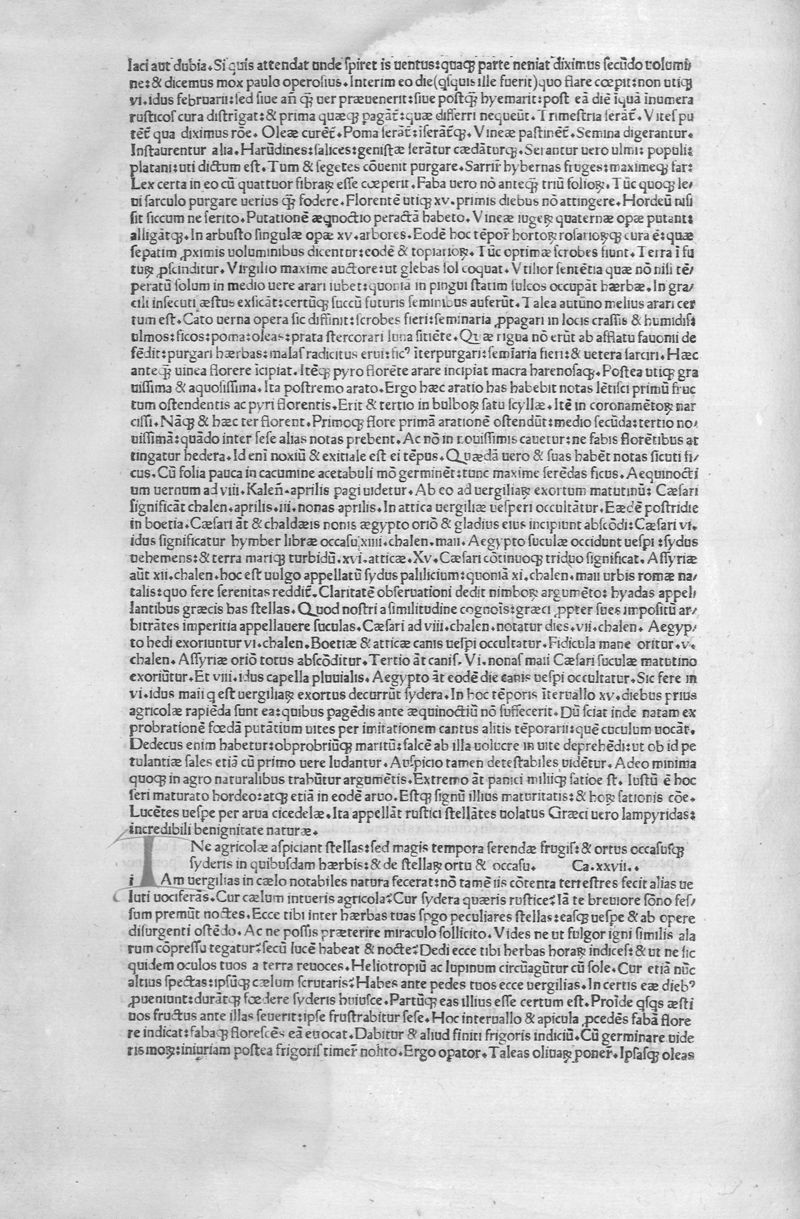 laci aut dubia. Si quis attendat unde spiret is uentus: quaqꝫ parte neniat diximus secūdo uolumi
ne: & dicemus mox paulo operosius. Interim eo die (qsquis ille fuerit) quo flare cœpit: non utiqꝫ
vi. idus februarii: sed siue añ qꝫ uer præuenerit: siue postqꝫ hyemarit: post eā diē iquā inumera
rusticos cura distrigat: & prima quæqꝫ pagāt: quæ differri nequeūt. Trimestria serāt. Vites pu
tēt qua diximus rōe. Oleæ curēt. Poma serāt: iserātqꝫ. Vineæ pastinēt. Semina digerantur.
Instaurentur alia. Harūdines: salices: genistæ serātur cædāturqꝫ. Serantur uero ulmi: populi:
platani: uti dictum est. Tum & segetes cōuenit purgare. Sarrir hybernas fruges: maximeqꝫ far:
Lex certa in eo cū quattuor fibraꝝ esse cœperit. Faba uero nō anteqꝫ triū folioꝝ. Tūc quoqꝫ le/
ui sarculo purgare uerius qꝫ fodere. Florentē utiqꝫ xv. primis diebus nō attingere. Hordeū nisi
sit siccum ne serito. Putationē æqnoctio peractā habeto. Vineæ iugeꝝ quaternæ opæ putant:
alligātqꝫ. In arbusto singulæ opæ xv. arbores. Eodē hoc tēpor hortoꝝ rosarioꝝqꝫ cura ē: quæ
sepatim ꝓximis uoluminibus dicentur: eodē & topiarioꝝ. Tūc optimæ scrobes fiunt. Terra ī fu
tuꝝ ꝓscinditur. Virgilio maxime auctore: ut glebas sol coquat. Vtilior sentētia quæ nō nisi tē/
peratū solum in medio uere arari iubet: quoniā in pingui statim sulcos occupāt hærbæ. In gra/
cili insecuti æstus exsicāt: certūqꝫ succū futuris seminibus auferūt. Talea autūno melius arari cer
tum est. Cato uerna opera sic diffinit: scrobes fieri: seminaria ꝓpagari in locis crassis & humidis:
ulmos: ficos: poma: oleas: prata stercorari luna sitiēte. Quæ rigua nō erūt ab afflatu fauonii de
fēdit: purgari hærbas: malas radicitus erui: ficꝰ īterpurgari: semīaria fieri: & uetera sarciri. Hæc
anteqꝫ uinea florere īcipiat. Itēqꝫ pyro florēte arare incipiat macra harenosaqꝫ. Postea utiqꝫ gra
uissima & aquosissima. Ita postremo arato. Ergo hæc aratio has habebit notas lētisci primū fruc
tum ostendentis ac pyri florentis. Erit & tertio in bulboꝝ satu scyllæ. Itē in coronamētoꝝ nar
cissi. Nāqꝫ & hæc ter florent. Primoqꝫ flore primā arationē ostendūt: medio secūda: tertio no/
uissimā: quādo inter sese alias notas prebent. Ac nō in nouissimis cauetur: ne fabis florētibus at
tingatur hedera. Id enī noxiū & exitiale est ei tēpus. Quædā uero & suas habēt notas sicuti fi/
cus. Cū folia pauca in cacumine acetabuli mō germinēt: tunc maxime serēdas ficus. Aequinocti
um uernum ad viii. Kaleñ. aprilis pagi uidetur. Ab eo ad uergiliaꝝ exortum matutinū: Cæsari
significāt chalen. aprilis. iii. nonas aprilis. In attica uergiliæ uesperi occultātur. Eædē postridie
in boetia. Cæsari āt & chaldæis nonis ægypto oriō & gladius eius incipiunt abscōdi: Cæsari vi.
idus significatur hymber libræ occasu. xiiii. chalen. maii. Aegypto suculæ occidunt uespi: sydus
uehemens: & terra mariqꝫ turbidū. xvi. atticæ. Xv. Cæsari cōtinuoqꝫ triduo significat. Assyriæ
aūt xii. chalen. hoc est uulgo appellatū sydus palilicium: quoniā xi. chalen. maii urbis romæ na/
talis: quo fere serenitas reddit. Claritatē obseruationi dedit nimboꝝ argumēto: hyadas appel/
lantibus græcis has stellas. Quod nostri a similitudine cognoīs: græci ꝓpter sues impositū ar/
bitrātes imperitia appellauere suculas. Cæsari ad viii. chalen. notatur dies. vii. chalen. Aegyp/
to hedi exoriuntur vi. chalen. Boetiæ & atticæ canis uespi occultatur. Fidicula mane oritur. v.
chalen. Assyriæ oriō totus abscōditur. Tertio āt canis. Vi. nonas maii Cæsari suculæ matutino
exoriūtur. Et viii. idus capella pluuialis. Aegypto āt eodē die canis uespi occultatur. Sic fere in
vi. idus maii q est uergiliaꝝ exortus decurrūt sydera. In hoc tēporis īteruallo xv. diebus prius
agricolæ rapiēda sunt ea: quibus pagēdis ante æquinoctiū nō suffecerit. Dū sciat inde natam ex
probrationē fœdā putātium uites per imitationem cantus alitis tēporarii: quē cuculum uocāt.
Dedecus enim habetur: obprobriūqꝫ maritū: falcē ab illa uolucre in uite deprehēdi: ut ob id pe
tulantiæ sales etiā cū primo uere ludantur. Auspicio tamen detestabiles uidētur. Adeo minima
quoqꝫ in agro naturalibus trahūtur argumētis. Extremo āt panici miliiqꝫ satioe st. Iustū ē hoc
seri maturato hordeo: atqꝫ etiā in eodē aruo. Estqꝫ signū illius maturitatis: & hoꝝ sationis cōe.
Lucētes uespe per arua cicedelæ. Ita appellāt rustici stellātes uolatus Græci uero lampyridas:
incredibili benignitate naturæ.
I Ne agricolæ aspiciant stellas: sed magis tempora serendæ frugis: & ortus occasusqꝫ
syderis in quibusdam hærbis: & de stellaꝝ ortu & occasu. Ca. xxvii.
i Am uergilias in cælo notabiles natura fecerat: nō tamē iis cōtenta terrestres fecit alias ue
luti uociferās. Cur cælum intueris agricola? Cur sydera quæris rustice? Iā te breuiore sōno fes/
sum premūt noctes. Ecce tibi inter hærbas tuas spgo peculiares stellas: easqꝫ uespe & ab opere
disiurgenti ostēdo. Ac ne possis præterire miraculo sollicito. Vides ne ut fulgor igni similis ala
rum cōpressu tegatur? secū lucē habeat & nocte? Dedi ecce tibi herbas horaꝝ indices: & ut ne sic
quidem oculos tuos a terra reuoces. Heliotropiū ac lupinum circūagūtur cū sole. Cur etiā nūc
altius spectas: ipsūqꝫ cælum scrutaris? Habes ante pedes tuos ecce uergilias. In certis eæ diebꝰ
ꝓueniunt: durātqꝫ fœdere syderis huiusce. Partūqꝫ eas illius esse certum est. Proīde qsqs æsti
uos fructus ante illas seuerit: ipse frustrabitur sese. Hoc interuallo & apicula ꝓcedēs fabā flore
re indicat: fabaqꝫ florescēs eā euocat. Dabitur & aliud finiti frigoris indiciū. Cū germinare uide
ris moꝝ: iniuriam postea frigoris timer nohto. Ergo opator. Taleas oliuaꝝ poner. Ipsasqꝫ oleas